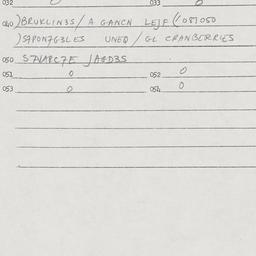 032 0 033 0
040 )BRUKLIN3S/A GANCN LEJF (/081050
)S7PON7G3LES UNEQ/GL CRANBERRIES
050 S7VAPC7E JAGD3S
051 0 052 0
053 0 054 0